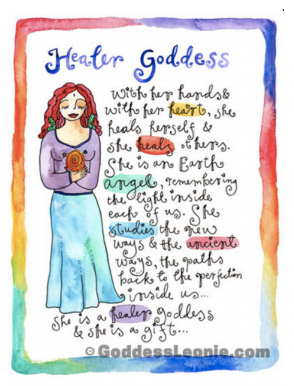 Healer Goddess
With her hands &
with her heart, she
heals herself &
she heals others.
She is an Earth
angel, remembering
the light inside
each of us. She
studies the new
ways & the ancient
ways, the paths
back to the perfection
inside us...
She is a healer goddess
& she is a gift...
© GoddessLeonie.com